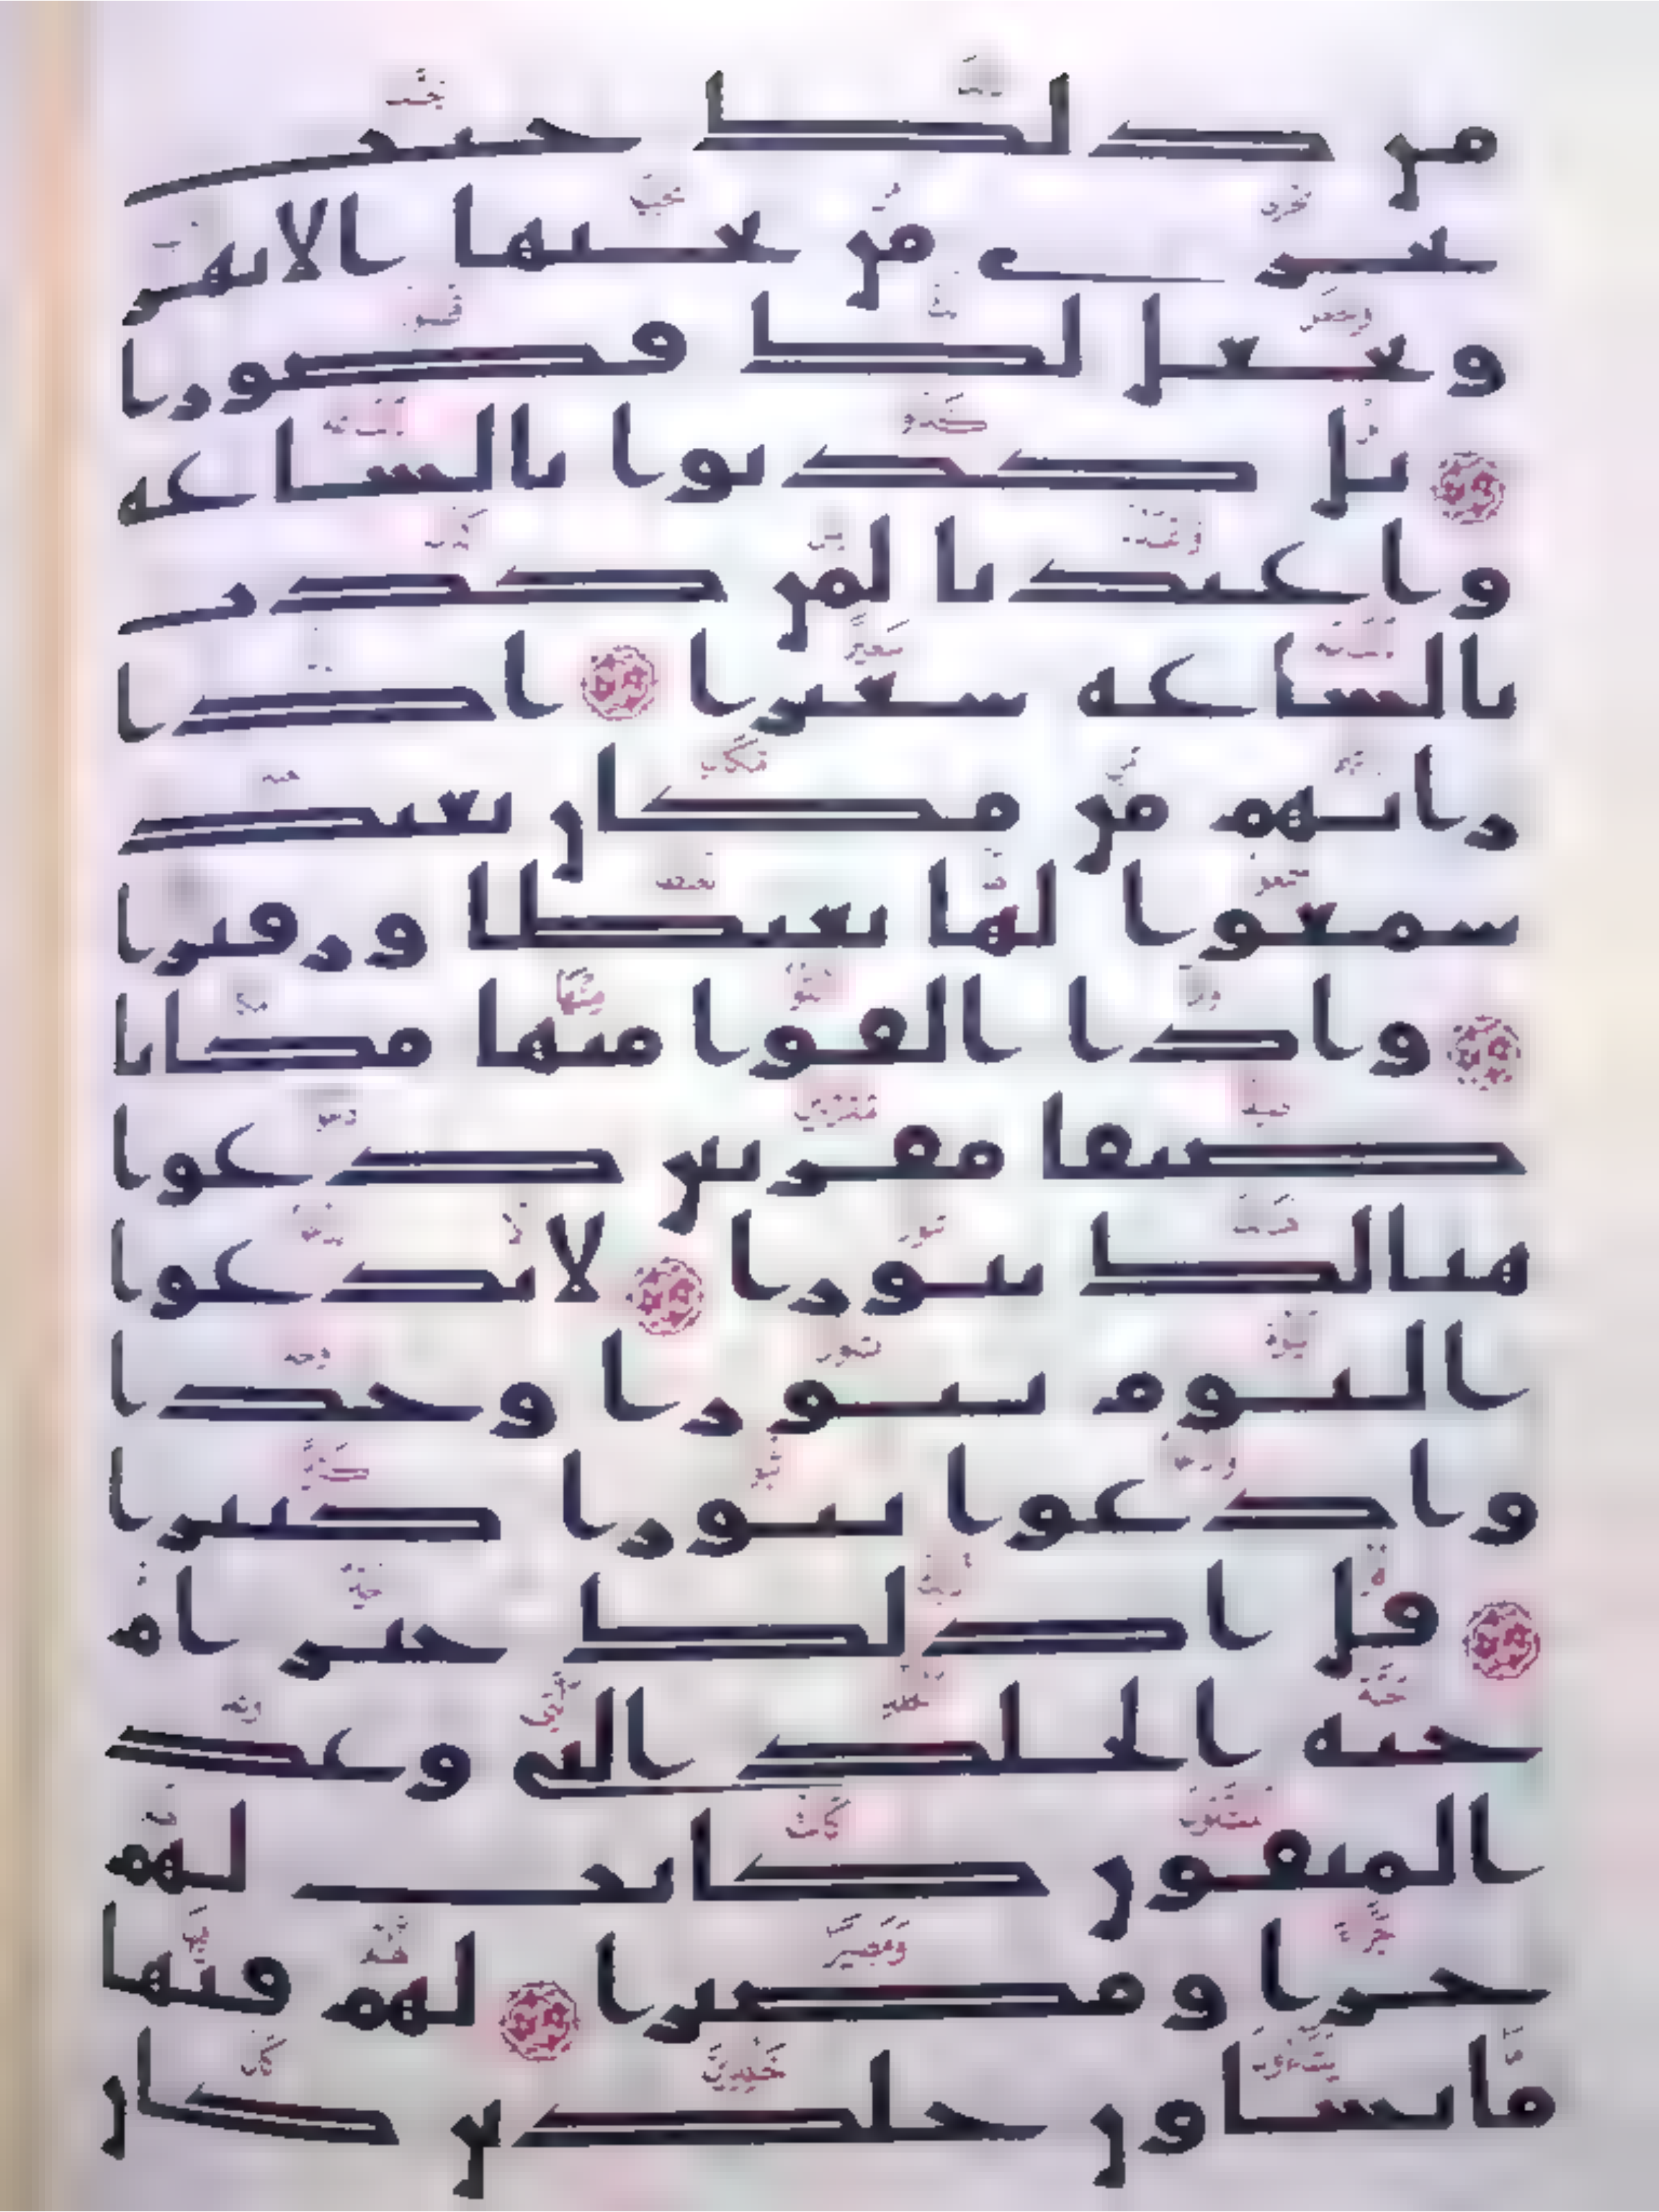 من ذلك جنت
تجري من تحتها الانهر
ويجعل لك قصورا
بل كذبوا بالساعه
واعتدنا لمن كذب
بالساعه سعيرا اذا
راتهم من مكان بعيد
سمعوا لها تغيظا وزفيرا
واذا القوا منها مكانا
ضيقا مقرنين دعوا
هنالك ثبورا لا تدعوا
اليوم ثبورا وحدا
وادعوا ثبورا كثيرا
قل اذلك خير ام
جنه الخلد التي وعد
المتقون كانت لهم
جزا ومصيرا لهم فيها
ما يشاون خلدين كان